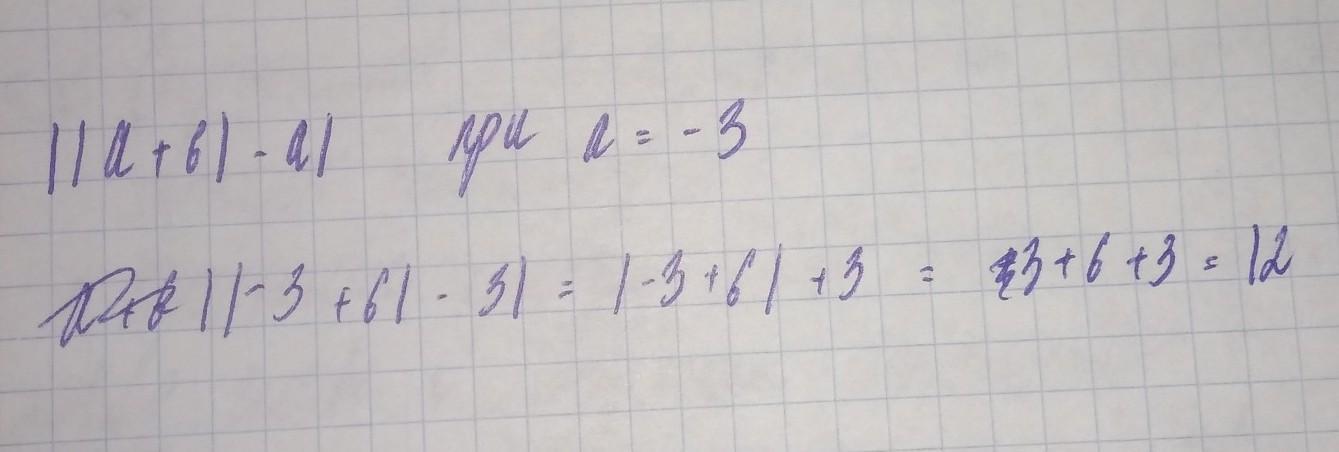 ||a+6|-a| при a = -3
||-3+6|-3| = |-3+6|+3 = 3+6+3 = 12